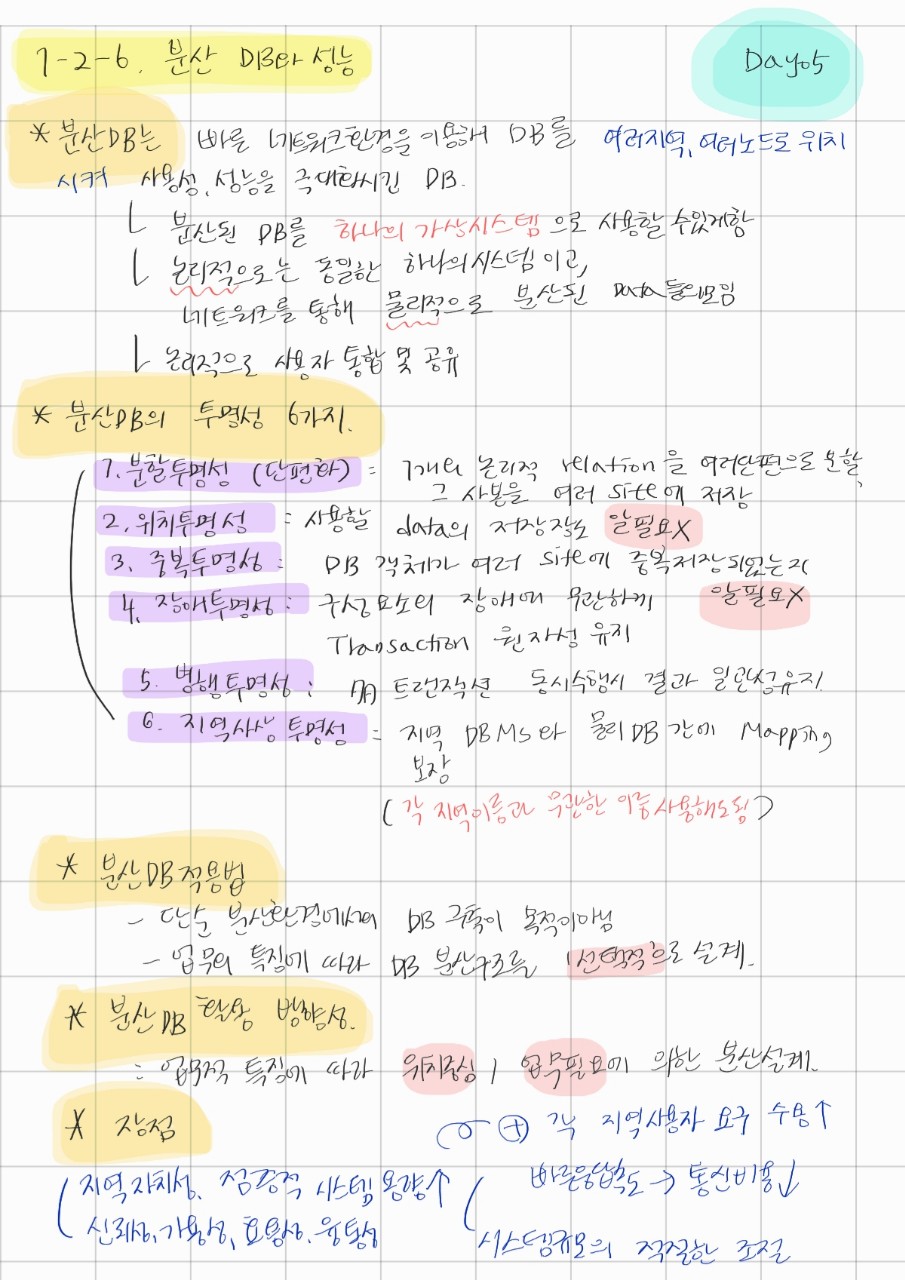 1-2-6. 분산 DB와 성능
Day05
* 분산DB는 빠른 네트워크환경을 이용해 DB를 여러지역, 여러노드로 위치
시켜 사용성, 성능을 극대화시킨 DB.
└ 분산된 DB를 하나의 가상시스템으로 사용할 수있게함
└ 논리적으로는 동일한 하나의시스템이고,
네트워크를 통해 물리적으로 분산된 Data들의모임
└ 논리적으로 사용자 통합 및 공유
* 분산DB의 투명성 6가지.
1. 분할투명성 (단편화) = 1개의 논리적 relation을 여러단편으로 분할,
그 사본을 여러 site에 저장
2. 위치투명성 : 사용할 data의 저장장소 알필요X
3. 중복투명성 : DB 객체가 여러 site에 중복저장되었는지
알필요X
4. 장애투명성 : 구성요소의 장애에 무관하게
Transaction 원자성 유지
5. 병행투명성 : 多 트랜잭션 동시수행시 결과 일관성유지.
6. 지역사상 투명성 = 지역 DBMS와 물리DB 간에 Mapping
보장
(각 지역이름과 무관한 이름사용해도됨)
* 분산DB적용법
- 단순 분산환경에서의 DB 구축이 목적이아님
- 업무의 특징에 따라 DB 분산구조를 선택적으로 설계.
* 분산DB 활용 방향성.
: 업무적 특징에 따라 위치중심 / 업무필요에 의한 분산설계.
* 장점
지역자치성, 점증적 시스템 용량↑
신뢰성, 가용성, 효용성, 융통성
⊕ 각 지역사용자 요구 수용↑
빠른응답속도 → 통신비용↓
시스템규모의 적절한 조절